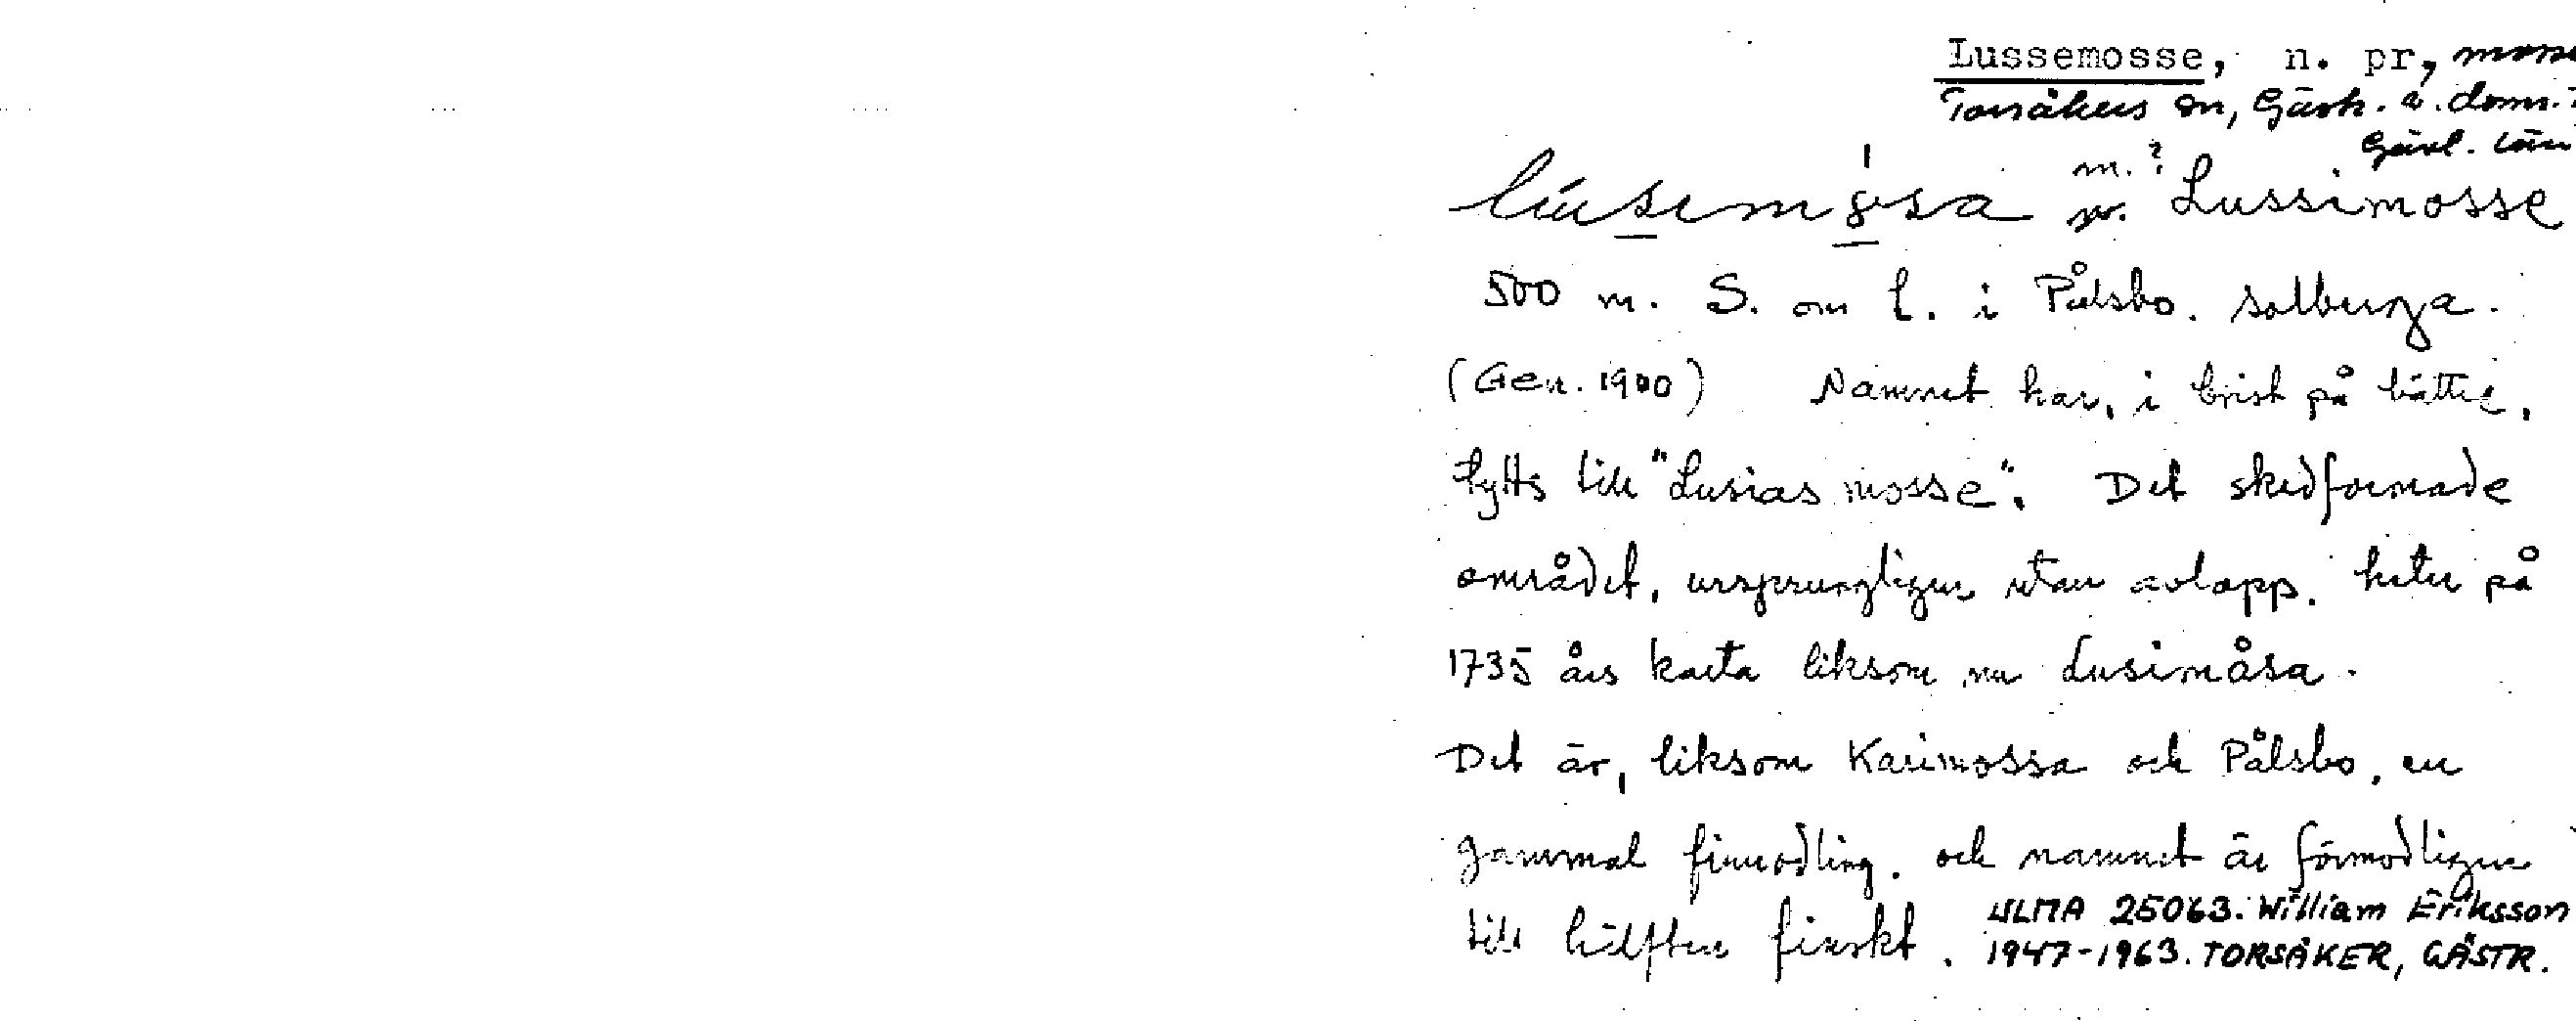 Lussemosse, n. pr, mosse
Torsåkers sn, Gästr. ö. doms.
Gävl. län
m.?
lúsemòsa Lussimosse
500 m. S. om l. i Pålsbo. solberga.
(Gen. 1900) Namnet har, i brist på bättre,
tytts till "Lusias mosse". Det skedformade
området, ursprungligen utan avlopp. heter på
1735 års karta liksom nu Lusimåsa.
Det är, liksom Karimossa och Pålsbo, en
gammal finnodling. och namnet är förmodligen
till hälften finskt.
ULMA 25063. William Eriksson
1947-1963. TORSÅKER, GÄSTR.